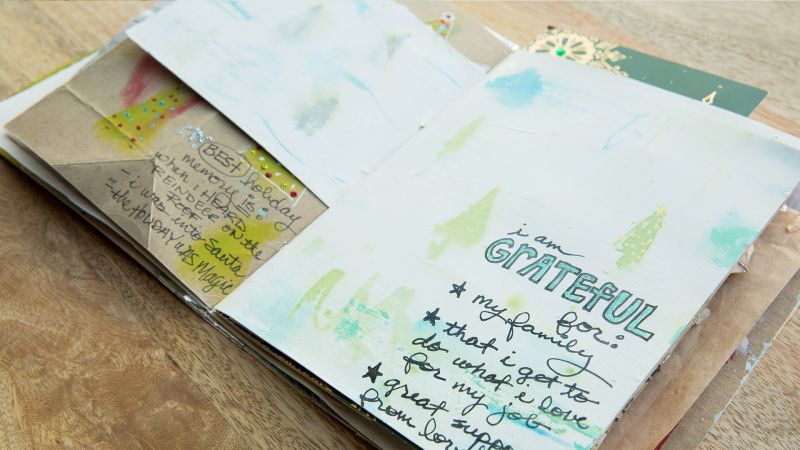 BEST holiday
memory is:
when I HEARD
REINDEER
ROOF on the
- i was into Santa
& the HOLIDAY WAS Magic
i am
GRATEFUL
for:
★ my family
★ that i get to
do what i love
for my job
★ great suppo
from